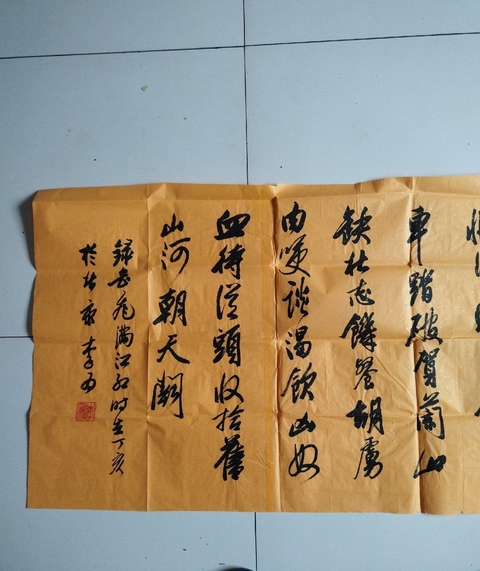 車踏破賀蘭山
缺壯志饑餐胡虜
肉笑談渴飲匈奴
血待從頭收拾舊
山河朝天闕
錄岳飛滿江紅時在丁亥
於北京李